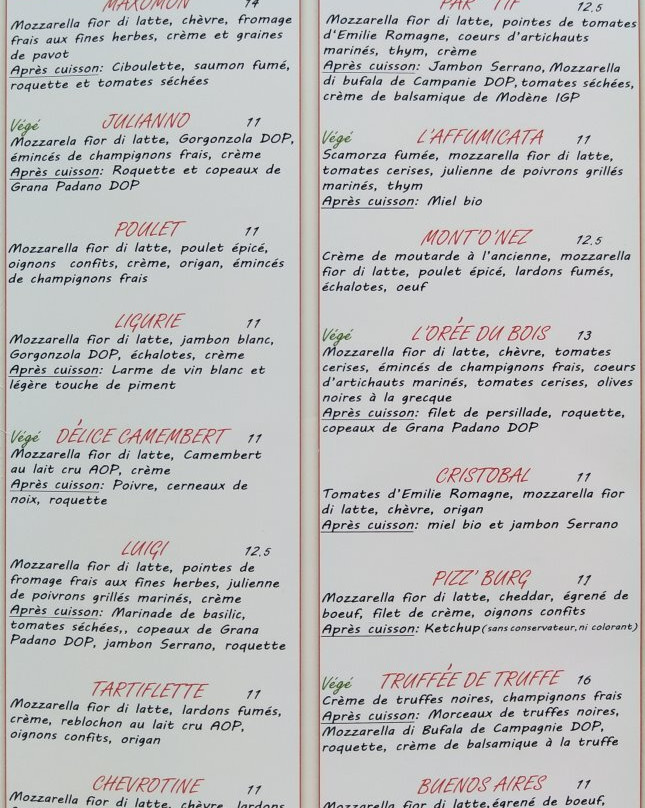 MAXOMON 14
Mozzarella fior di latte, chèvre, fromage
frais aux fines herbes, crème et graines
de pavot
Après cuisson: Ciboulette, saumon fumé,
roquette et tomates séchées
Végé JULIANNO 11
Mozzarela fior di latte, Gorgonzola DOP,
émincés de champignons frais, crème
Après cuisson: Roquette et copeaux de
Grana Padano DOP
POULET 11
Mozzarella fior di latte, poulet épicé,
oignons confits, crème, origan, émincés
de champignons frais
LIGURIE 11
Mozzarella fior di latte, jambon blanc,
Gorgonzola DOP, échalotes, crème
Après cuisson: Larme de vin blanc et
légère touche de piment
Végé DÉLICE CAMEMBERT 11
Mozzarella fior di latte, Camembert
au lait cru AOP, crème
Après cuisson: Poivre, cerneaux de
noix, roquette
LUIGI 12.5
Mozzarella fior di latte, pointes de
fromage frais aux fines herbes, julienne
de poivrons grillés marinés, crème
Après cuisson: Marinade de basilic,
tomates séchées,, copeaux de Grana
Padano DOP, jambon Serrano, roquette
TARTIFLETTE 11
Mozzarella fior di latte, lardons fumés,
crème, reblochon au lait cru AOP,
oignons confits, origan
CHEVROTINE 11
Mozzarella fior di latte, chèvre, lardons
PAR' TIF 12.5
Mozzarella fior di latte, pointes de tomates
d'Emilie Romagne, coeurs d'artichauts
marinés, thym, crème
Après cuisson: Jambon Serrano, Mozzarella
di bufala de Campanie DOP, tomates séchées,
crème de balsamique de Modène IGP
Végé L'AFFUMICATA 11
Scamorza fumée, mozzarella fior di latte,
tomates cerises, julienne de poivrons grillés
marinés, thym
Après cuisson: Miel bio
MONT'O'NEZ 12.5
Crème de moutarde à l'ancienne, mozzarella
fior di latte, poulet épicé, lardons fumés,
échalotes, oeuf
Végé L'ORÉE DU BOIS 13
Mozzarella fior di latte, chèvre, tomates
cerises, émincés de champignons frais, coeurs
d'artichauts marinés, tomates cerises, olives
noires à la grecque
Après cuisson: filet de persillade, roquette,
copeaux de Grana Padano DOP
CRISTOBAL 11
Tomates d'Emilie Romagne, mozzarella fior
di latte, chèvre, origan
Après cuisson: miel bio et jambon Serrano
PIZZ' BURG 11
Mozzarella fior di latte, cheddar, égrené de
boeuf, filet de crème, oignons confits
Après cuisson: Ketchup (sans conservateur, ni colorant)
Végé TRUFFÉE DE TRUFFE 16
Crème de truffes noires, champignons frais
Après cuisson: Morceaux de truffes noires,
Mozzarella di Bufala de Campagnie DOP,
roquette, crème de balsamique à la truffe
BUENOS AIRES 11
Mozzarella fior di latte, égrené de boeuf,